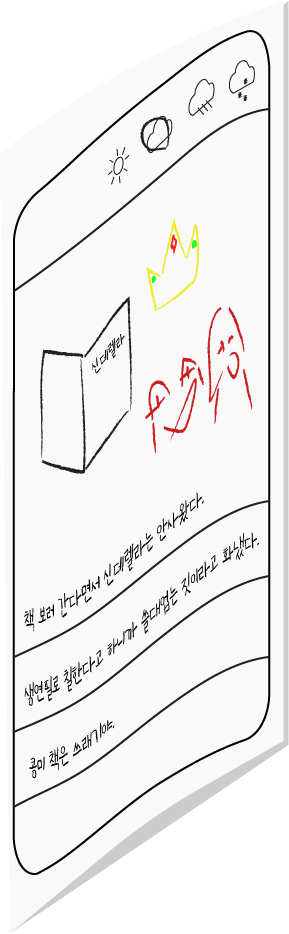 신데렐라
책 보러 간다면서 신데렐라는 안사왔다.
생연필로 칠한다고 하니까 쓸대업는 짓이라고 화냈다.
콩미 책은 쓰래기야.